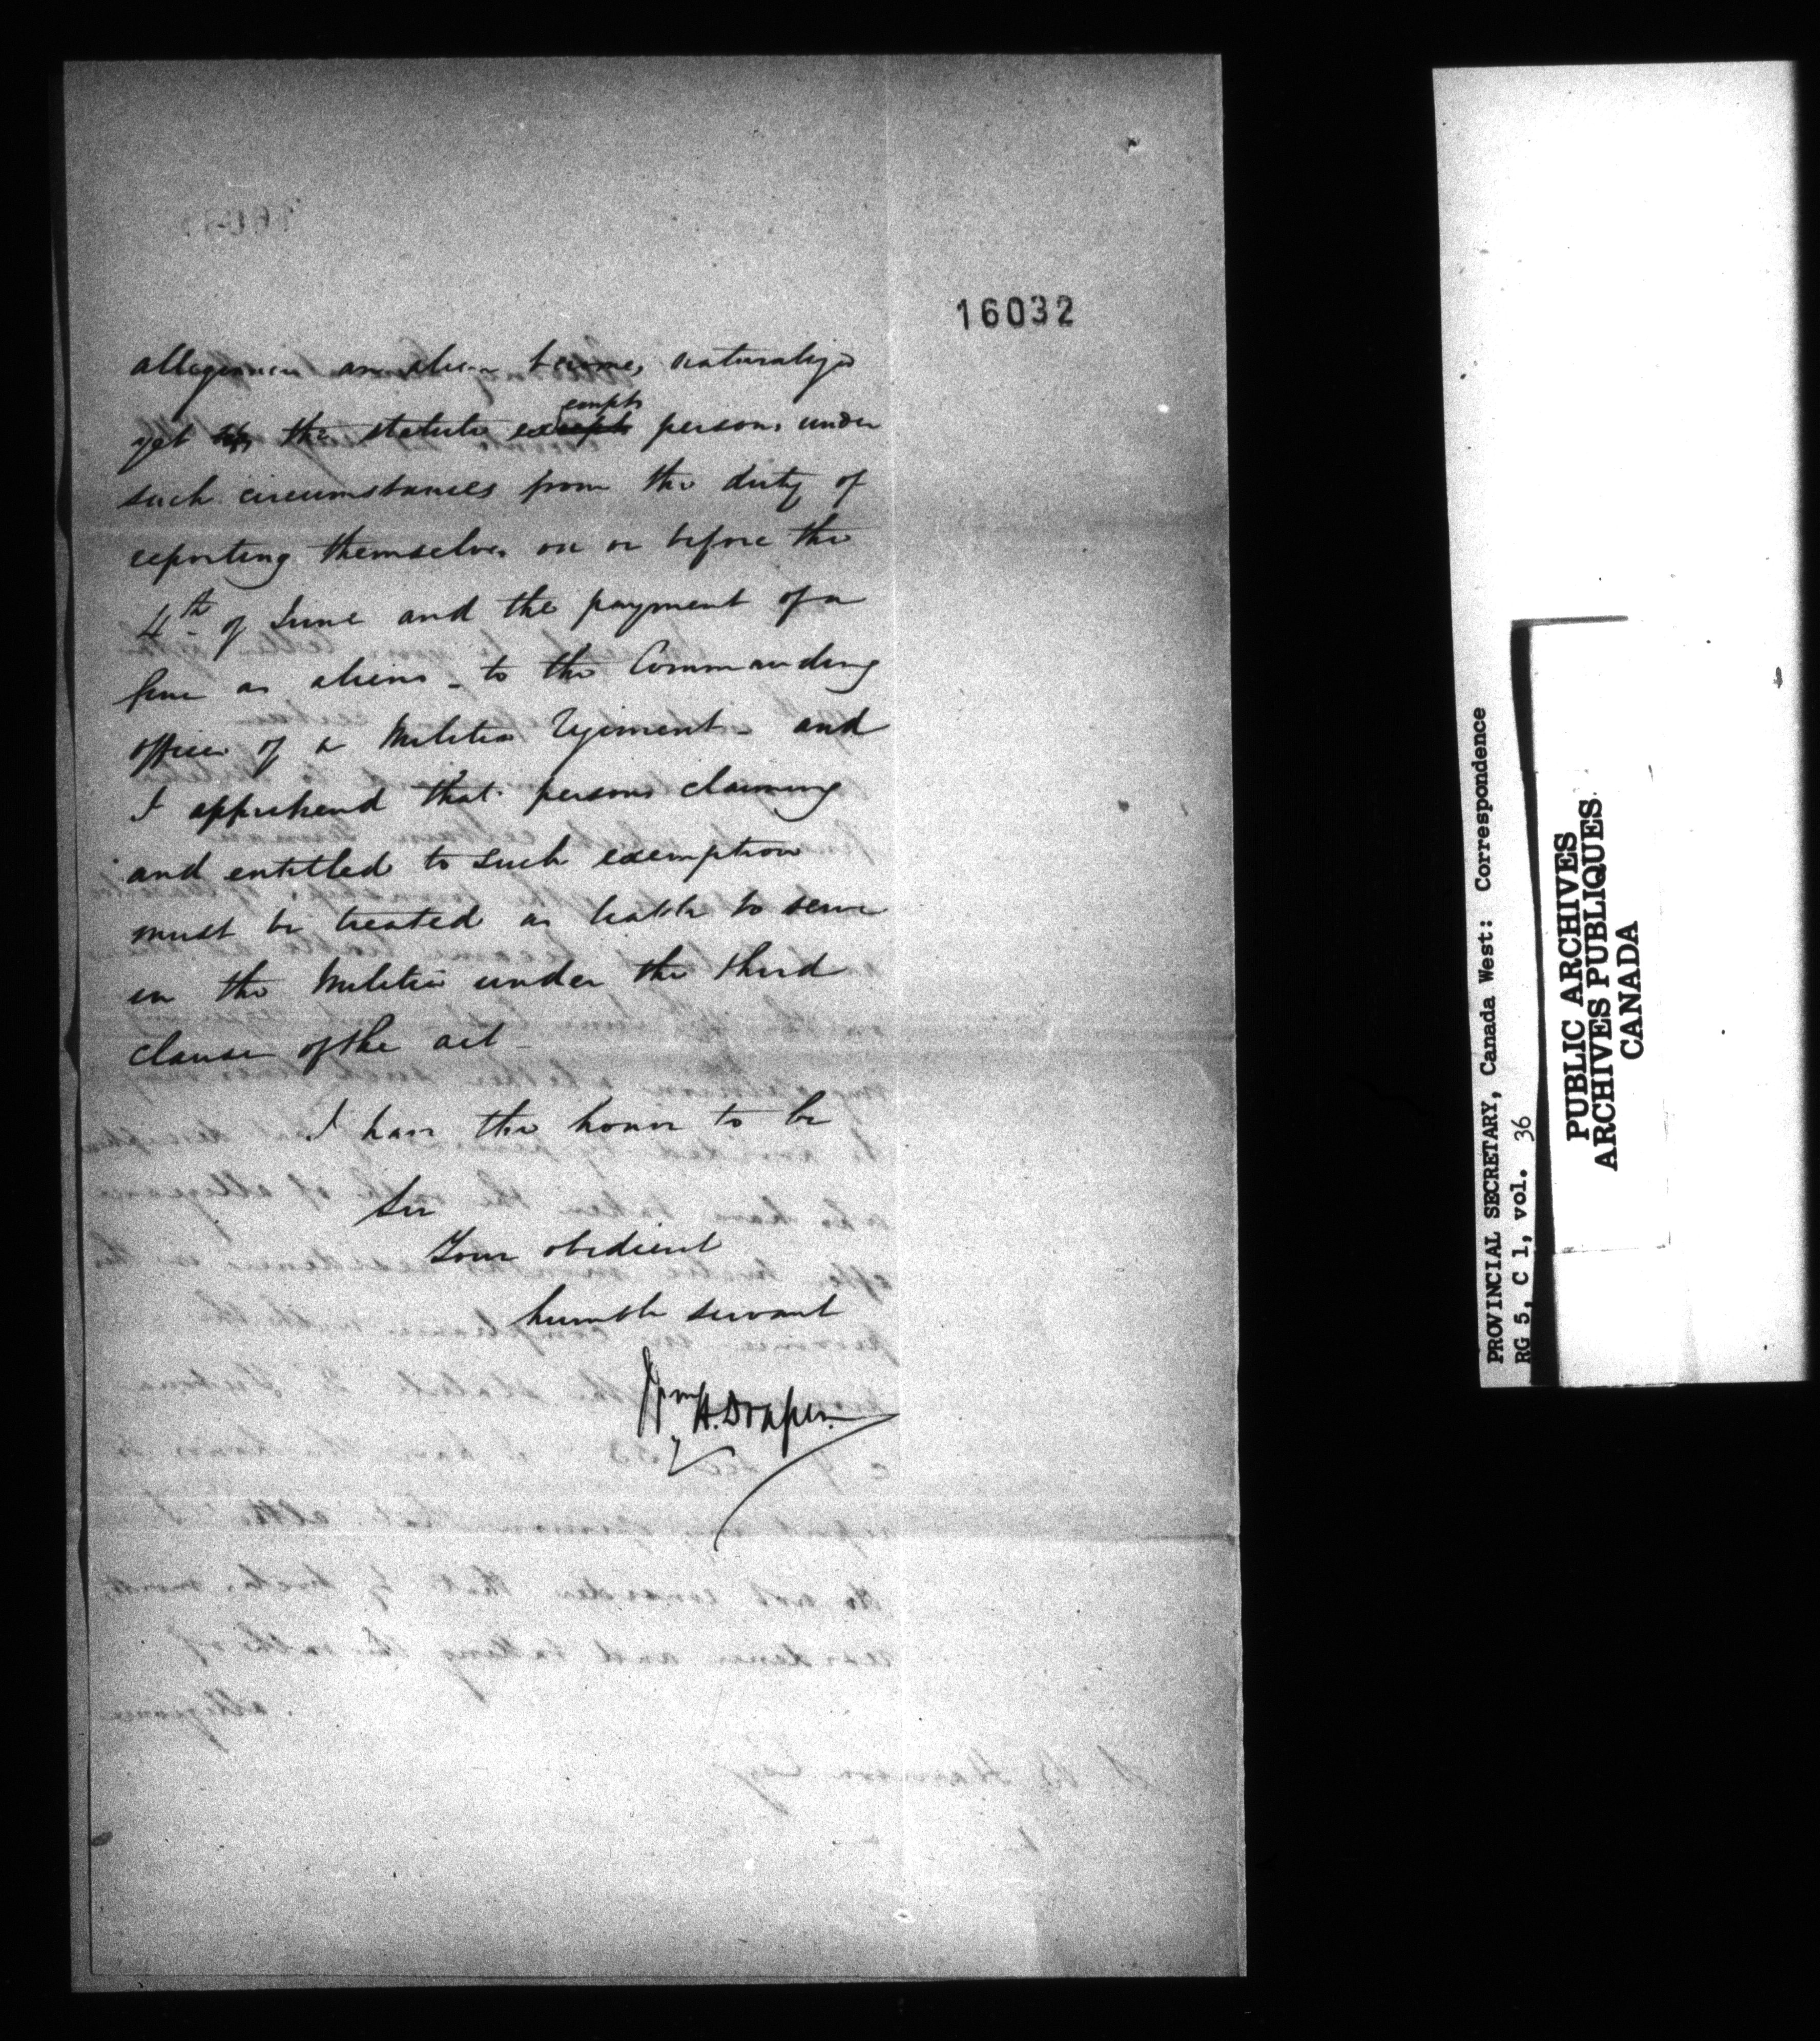 16032
allegiance an alien becomes naturalized
yet the statute exempts persons under
such circumstances from the duty of
reporting themselves on or before the
4th of June and the payment of a
fine as aliens - to the Commanding
officer of a Militia Regiment - and
I apprehend that persons claiming
and entitled to such exemption
must be treated as liable to serve
in the Militia under the third
clause of the act -
I have the honor to be
Sir
Your obedient
humble servant
Wm H. Draper.
PROVINCIAL SECRETARY, Canada West: Correspondence
RG 5, C 1, vol. 36
PUBLIC ARCHIVES
ARCHIVES PUBLIQUES
CANADA